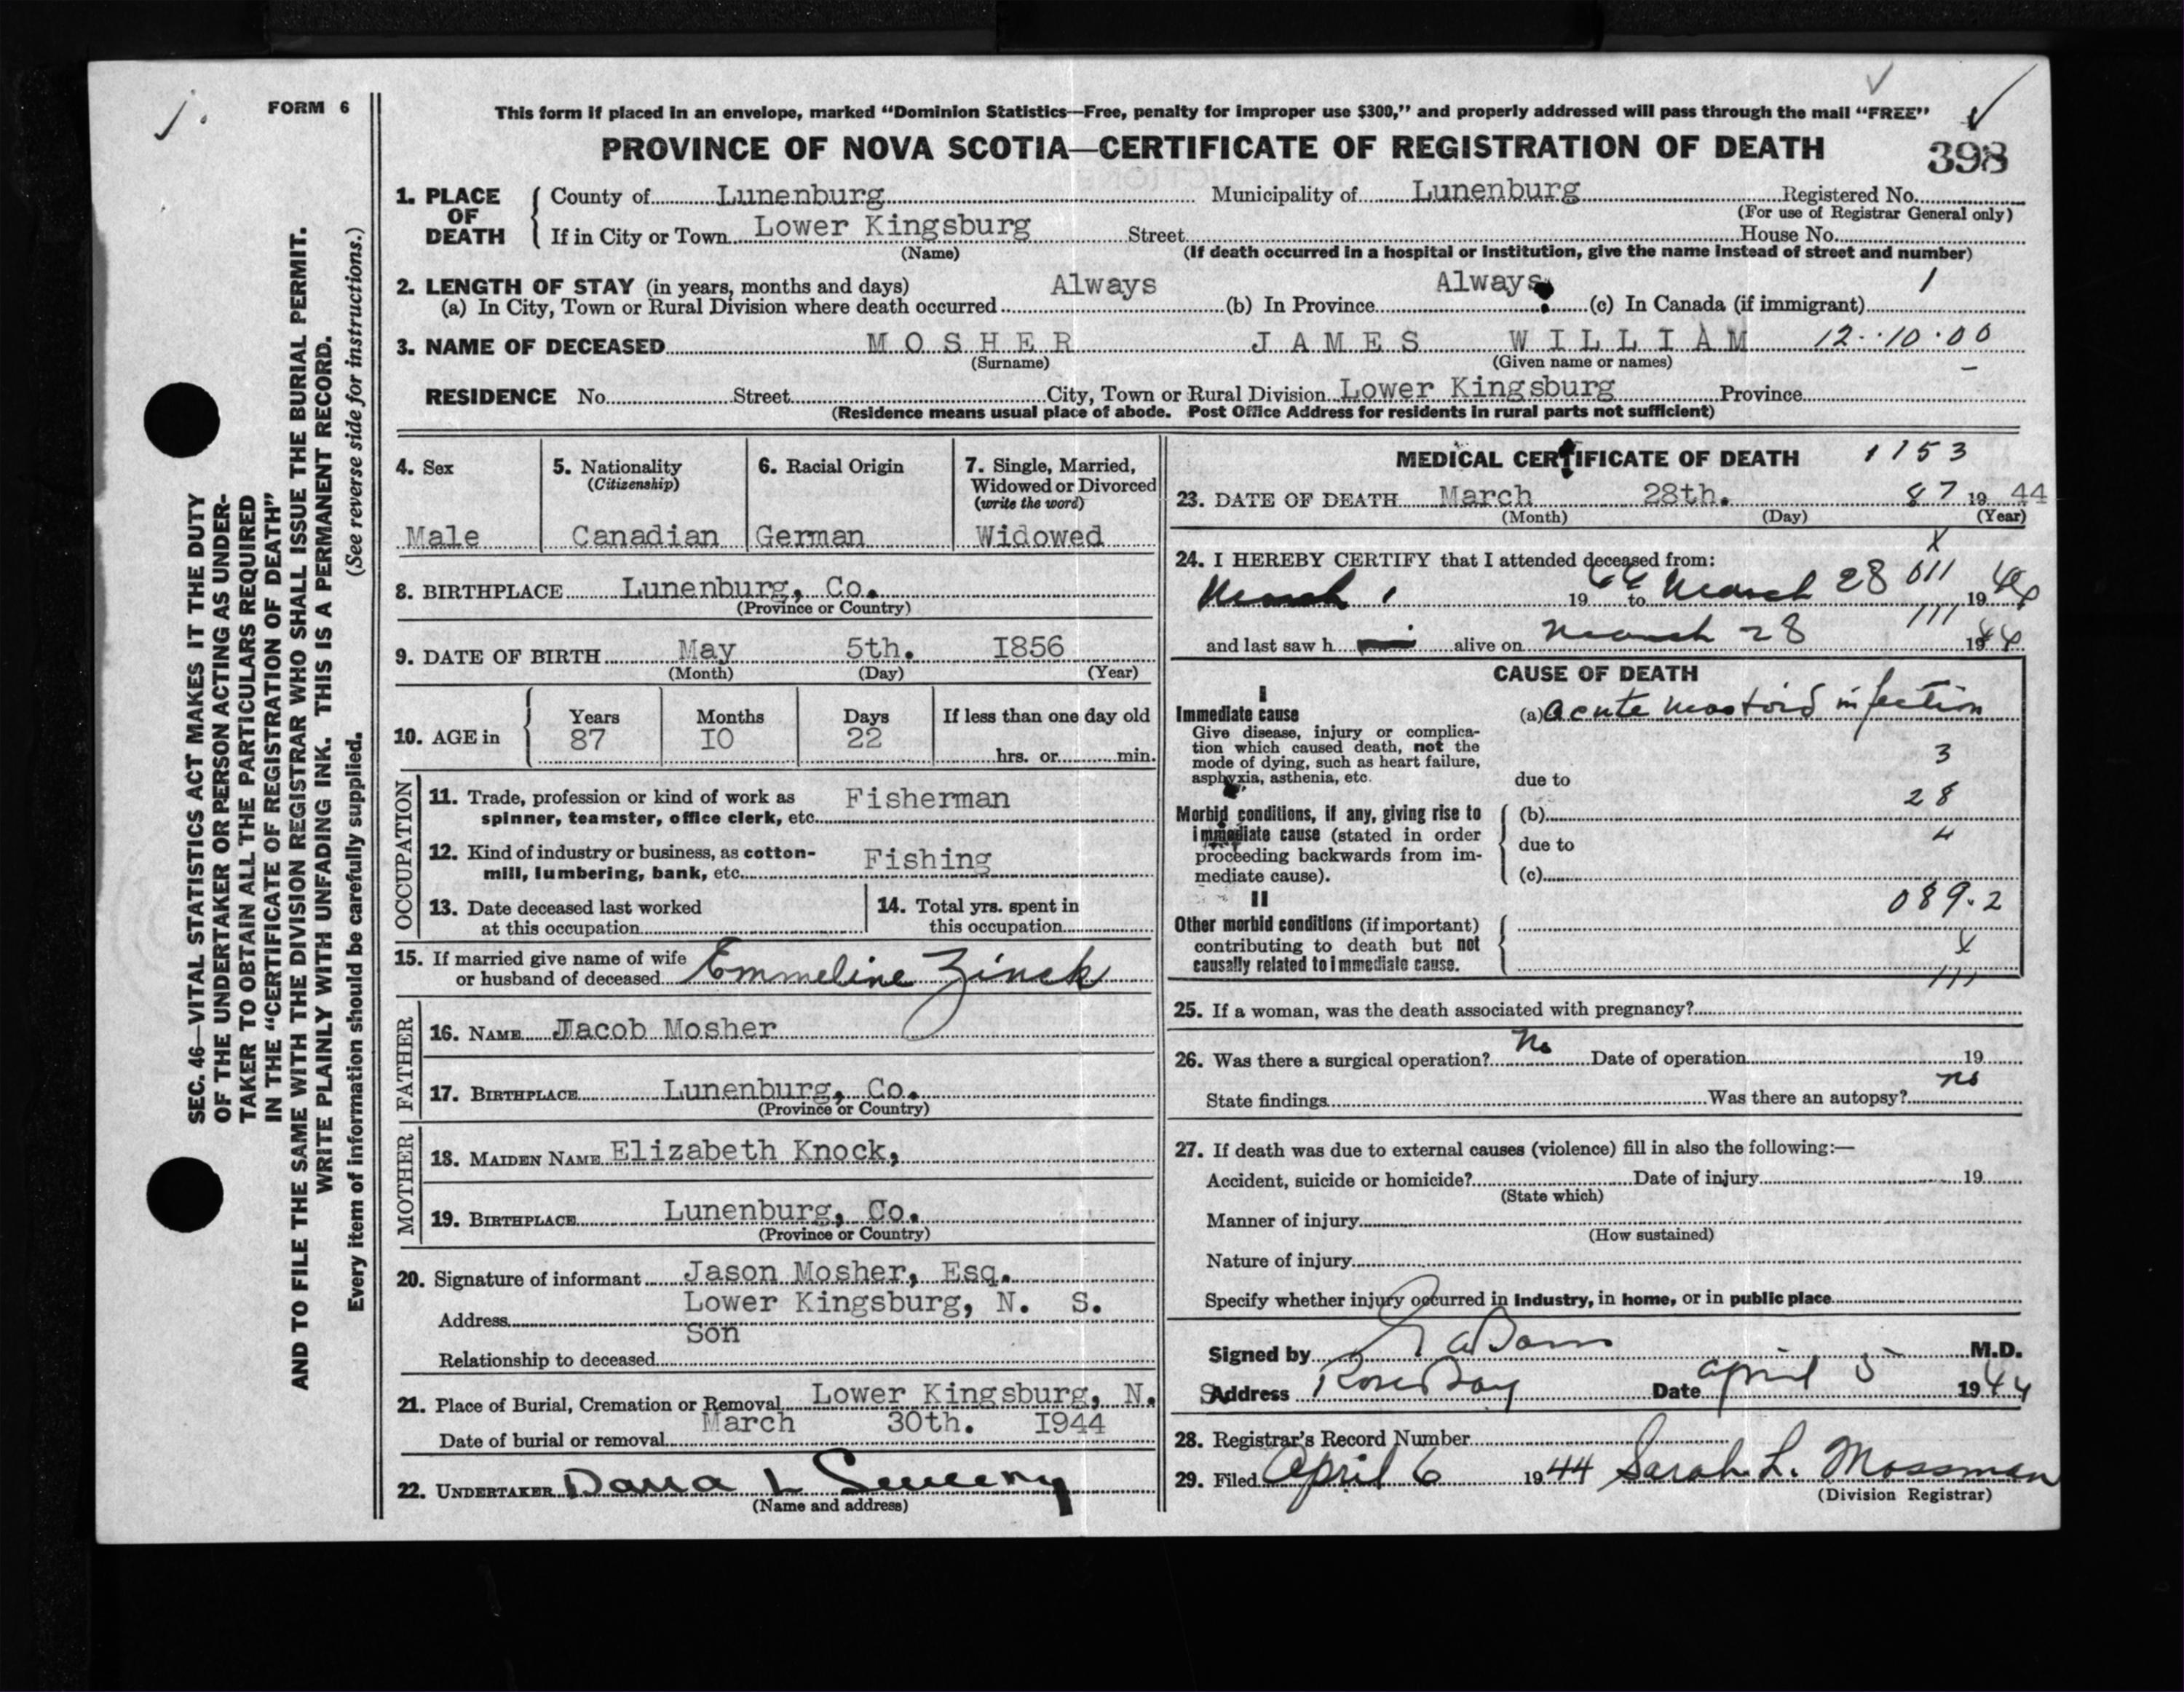 j.
FORM 6
This form if placed in an envelope, marked "Dominion Statistics—Free, penalty for improper use $300," and properly addressed will pass through the mail "FREE"
PROVINCE OF NOVA SCOTIA—CERTIFICATE OF REGISTRATION OF DEATH
398
1. PLACE OF DEATH
County of Lunenburg Municipality of Lunenburg Registered No.
(For use of Registrar General only)
If in City or Town Lower Kingsburg Street House No.
(Name) (If death occurred in a hospital or institution, give the name instead of street and number)
2. LENGTH OF STAY (in years, months and days)
(a) In City, Town or Rural Division where death occurred Always (b) In Province Always (c) In Canada (if immigrant) 1
3. NAME OF DECEASED MOSHER JAMES WILLIAM 12·10·00
(Surname) (Given name or names)
RESIDENCE No. Street City, Town or Rural Division Lower Kingsburg Province
(Residence means usual place of abode. Post Office Address for residents in rural parts not sufficient)
4. Sex
Male
5. Nationality
(Citizenship)
Canadian
6. Racial Origin
German
7. Single, Married,
Widowed or Divorced
(write the word)
Widowed
8. BIRTHPLACE Lunenburg, Co.
(Province or Country)
9. DATE OF BIRTH May 5th. I856
(Month) (Day) (Year)
10. AGE in
Years Months Days If less than one day old
87 IO 22 hrs. or min.
OCCUPATION
11. Trade, profession or kind of work as
spinner, teamster, office clerk, etc. Fisherman
12. Kind of industry or business, as cotton-
mill, lumbering, bank, etc. Fishing
13. Date deceased last worked
at this occupation
14. Total yrs. spent in
this occupation
15. If married give name of wife
or husband of deceased Emmeline Zinck
FATHER
16. NAME Jacob Mosher
17. BIRTHPLACE Lunenburg, Co.
(Province or Country)
MOTHER
18. MAIDEN NAME Elizabeth Knock,
19. BIRTHPLACE Lunenburg, Co.
(Province or Country)
20. Signature of informant Jason Mosher, Esq.
Address Lower Kingsburg, N. S.
Relationship to deceased Son
21. Place of Burial, Cremation or Removal Lower Kingsburg, N. S
Date of burial or removal March 30th. I944
22. UNDERTAKER Dana L Sweeny
(Name and address)
MEDICAL CERTIFICATE OF DEATH 1153
23. DATE OF DEATH March 28th. 87 1944
(Month) (Day) (Year)
X
24. I HEREBY CERTIFY that I attended deceased from:
March 1 1944 to March 28 011 1944
111
and last saw h alive on March 28 1944
CAUSE OF DEATH
I
Immediate cause
Give disease, injury or complica-
tion which caused death, not the
mode of dying, such as heart failure,
asphyxia, asthenia, etc.
(a) Acute mastoid infection
3
due to
28
Morbid conditions, if any, giving rise to
immediate cause (stated in order
proceeding backwards from im-
mediate cause).
(b)
4
due to
(c)
089.2
II
Other morbid conditions (if important)
contributing to death but not
causally related to immediate cause.
X
111
25. If a woman, was the death associated with pregnancy?
26. Was there a surgical operation? No Date of operation 19
State findings Was there an autopsy? no
27. If death was due to external causes (violence) fill in also the following:—
Accident, suicide or homicide? Date of injury 19
(State which)
Manner of injury
(How sustained)
Nature of injury
Specify whether injury occurred in industry, in home, or in public place
Signed by M.D.
Address Rose Bay Date April 5 1944
28. Registrar's Record Number
29. Filed April 6 1944 Sarah L. Mossman
(Division Registrar)
SEC. 46—VITAL STATISTICS ACT MAKES IT THE DUTY
OF THE UNDERTAKER OR PERSON ACTING AS UNDER-
TAKER TO OBTAIN ALL THE PARTICULARS REQUIRED
IN THE "CERTIFICATE OF REGISTRATION OF DEATH"
AND TO FILE THE SAME WITH THE DIVISION REGISTRAR WHO SHALL ISSUE THE BURIAL PERMIT.
WRITE PLAINLY WITH UNFADING INK. THIS IS A PERMANENT RECORD.
Every item of information should be carefully supplied. (See reverse side for instructions.)